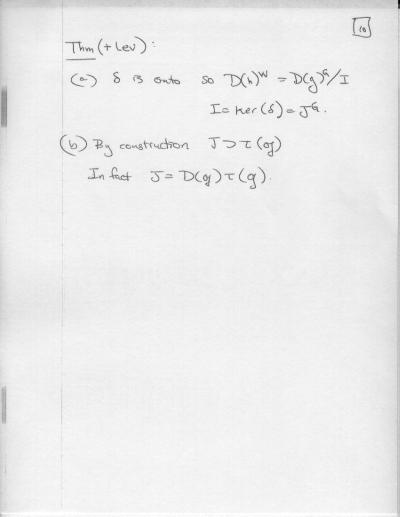 10
Thm (+ Lev):
(a) δ is onto so D(h)^W = D(g)^G/I
I = ker(δ) = J^G.
(b) By construction J ⊃ τ(g)
In fact J = D(g)τ(g).